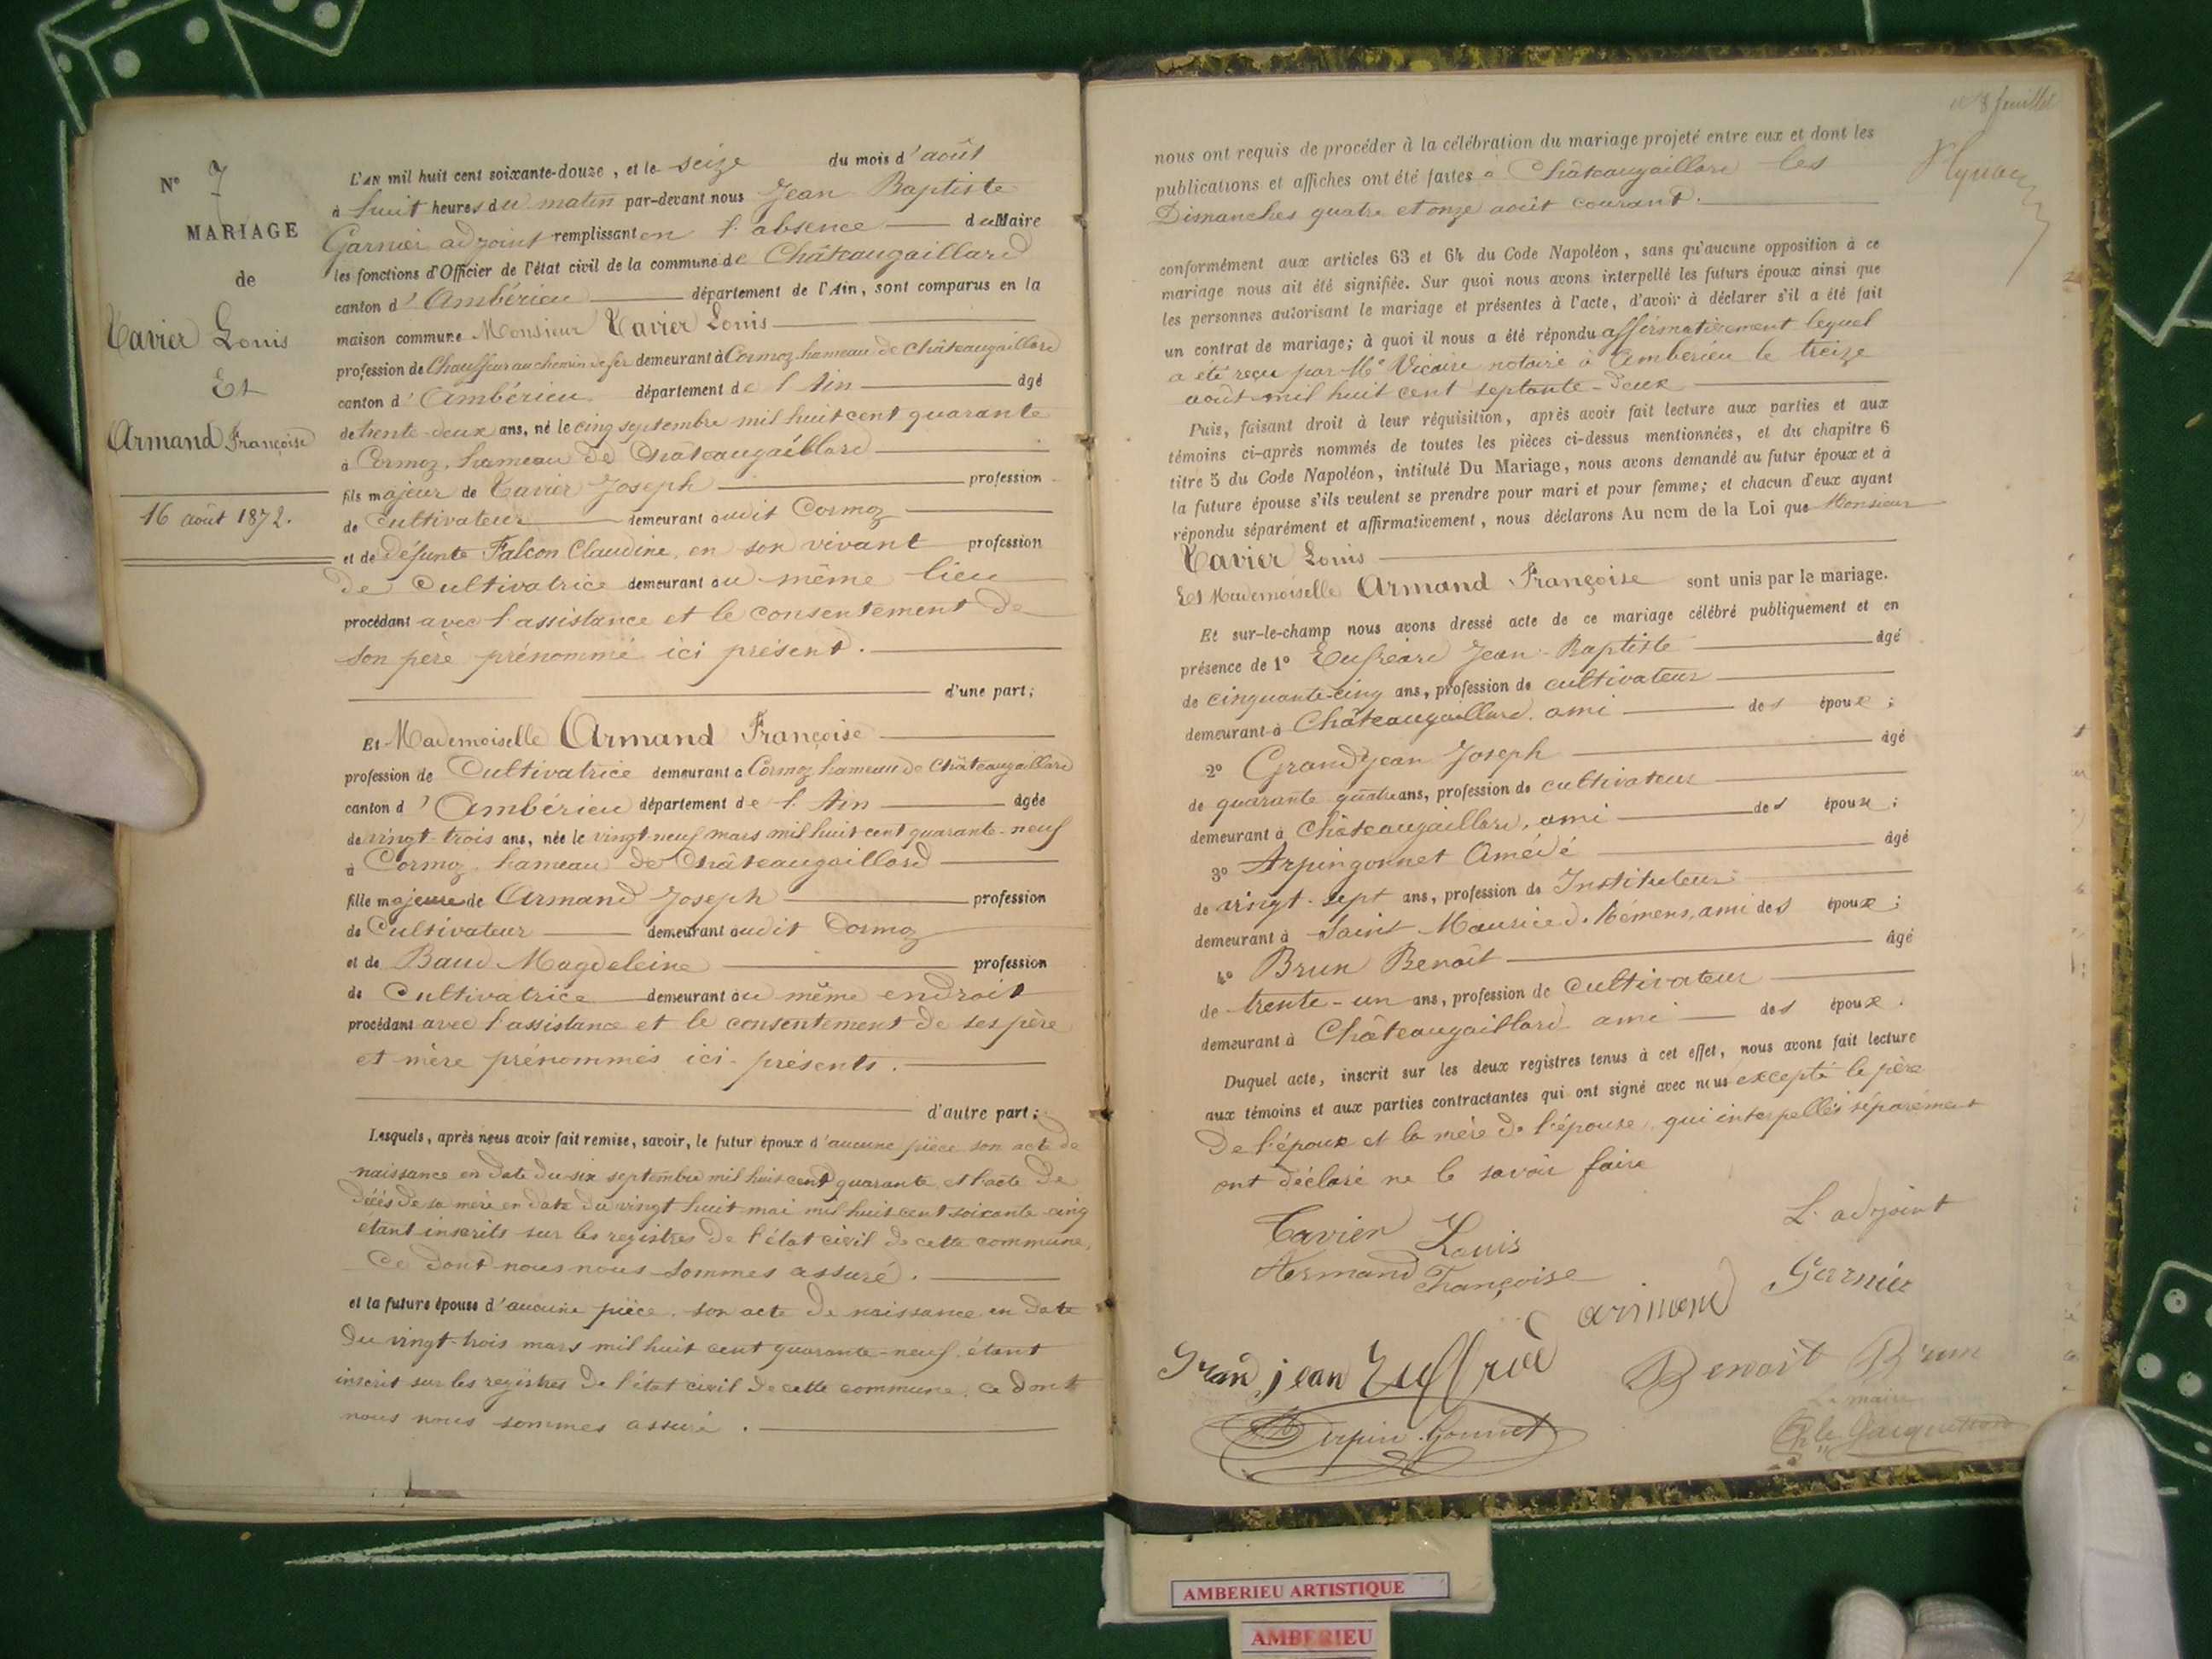 N° 7
MARIAGE
de
Tavier Louis
Et
Armand Françoise
16 août 1872.
L'AN mil huit cent soixante-douze, et le seize du mois d'août
à huit heures du matin par-devant nous Jean Baptiste
Garnier adjoint remplissant en l'absence du Maire
les fonctions d'Officier de l'état civil de la commune de Châteaugaillard
canton d'Ambérieu département de l'Ain, sont comparus en la
maison commune Monsieur Tavier Louis
profession de Chauffeur au chemin de fer demeurant à Cormoz hameau de Châteaugaillard
canton d'Ambérieu département de l'Ain âgé
de trente-deux ans, né le cinq septembre mil huit cent quarante
à Cormoz, hameau de Châteaugaillard
fils majeur de Tavier Joseph profession
de Cultivateur demeurant audit Cormoz
et de défunte Falcon Claudine, en son vivant profession
de Cultivatrice demeurant au même lieu
procédant avec l'assistance et le consentement de
son père prénommé ici présent.
d'une part;
Et Mademoiselle Armand Françoise
profession de Cultivatrice demeurant à Cormoz hameau de Châteaugaillard
canton d'Ambérieu département de l'Ain âgée
de vingt-trois ans, née le vingt-neuf mars mil huit cent quarante-neuf
à Cormoz, hameau de Châteaugaillard
fille majeure de Armand Joseph profession
de Cultivateur demeurant audit Cormoz
et de Baud Magdeleine profession
de Cultivatrice demeurant au même endroit
procédant avec l'assistance et le consentement de ses père
et mère prénommés ici-présents.
d'autre part;
Lesquels, après nous avoir fait remise, savoir, le futur époux d'aucune pièce son acte de
naissance en date du six septembre mil huit cent quarante et l'acte de
décès de sa mère en date du vingt huit mai mil huit cent soixante-cinq
étant inscrits sur les registres de l'état civil de cette commune,
Ce dont nous nous sommes assuré.
et la future épouse d'aucune pièce, son acte de naissance en date
du vingt-trois mars mil huit cent quarante-neuf, étant
inscrit sur les registres de l'état civil de cette commune, ce dont
nous nous sommes assuré.
8 feuillet
nous ont requis de procéder à la célébration du mariage projeté entre eux et dont les
publications et affiches ont été faites à Châteaugaillard les
Dimanches quatre et onze août courant.
conformément aux articles 63 et 64 du Code Napoléon, sans qu'aucune opposition à ce
mariage nous ait été signifiée. Sur quoi nous avons interpellé les futurs époux ainsi que
les personnes autorisant le mariage et présentes à l'acte, d'avoir à déclarer s'il a été fait
un contrat de mariage; à quoi il nous a été répondu affirmativement lequel
a été reçu par Me Vicaire notaire à Ambérieu le treize
août mil huit cent septante-deux
Puis, faisant droit à leur réquisition, après avoir fait lecture aux parties et aux
témoins ci-après nommés de toutes les pièces ci-dessus mentionnées, et du chapitre 6
titre 5 du Code Napoléon, intitulé Du Mariage, nous avons demandé au futur époux et à
la future épouse s'ils veulent se prendre pour mari et pour femme; et chacun d'eux ayant
répondu séparément et affirmativement, nous déclarons Au nom de la Loi que Monsieur
Tavier Louis
Et Mademoiselle Armand Françoise sont unis par le mariage.
Et sur-le-champ nous avons dressé acte de ce mariage célébré publiquement et en
présence de 1° Jean-Baptiste âgé
de cinquante-cinq ans, profession de cultivateur
demeurant à Châteaugaillard, ami des époux;
2° Grandjean Joseph âgé
de quarante quatre ans, profession de cultivateur
demeurant à Châteaugaillard, ami des époux;
3° Arpingonnet Amédé âgé
de vingt-sept ans, profession de Instituteur
demeurant à Saint Maurice d. Rémens, ami des époux;
4° Brun Benoît âgé
de trente-un ans, profession de Cultivateur
demeurant à Châteaugaillard ami des époux.
Duquel acte, inscrit sur les deux registres tenus à cet effet, nous avons fait lecture
aux témoins et aux parties contractantes qui ont signé avec nous excepté le père
De l'époux et la mère de l'épouse, qui interpellés séparément
ont déclaré ne le savoir faire
Tavier Louis
L'adjoint
Armand Françoise
Garnier
armand
Grandjean
Benoît Brun
Le maire
Arpin Gonnet
AMBERIEU ARTISTIQUE
AMBERIEU